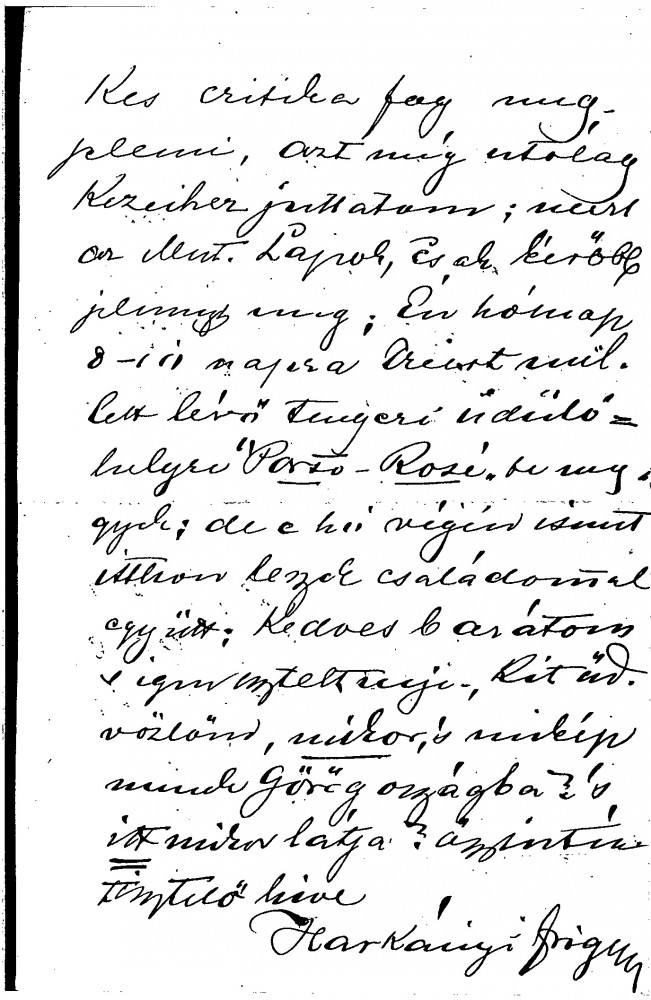 Kes critika fog meg-
jelenni, azt még utólag
Kezeihez juttatom; mert
az Mut. Lapok, csak később
jelennek meg; Én hónap
8-iki napra Triest mel-
lett lévő tengeri üdülő=
helyre "Porto-Rosé"-be megy
gyek; de e hó végén ismét
itthon leszek családommal
együtt; Kedves barátom
s igen tisztelt neje-, Kit üd-
vözlöm, mikor, s mikép
mende Görögországba? és
itt mikor látja? őszintén
tisztelő híve
Harkányi Frigyes